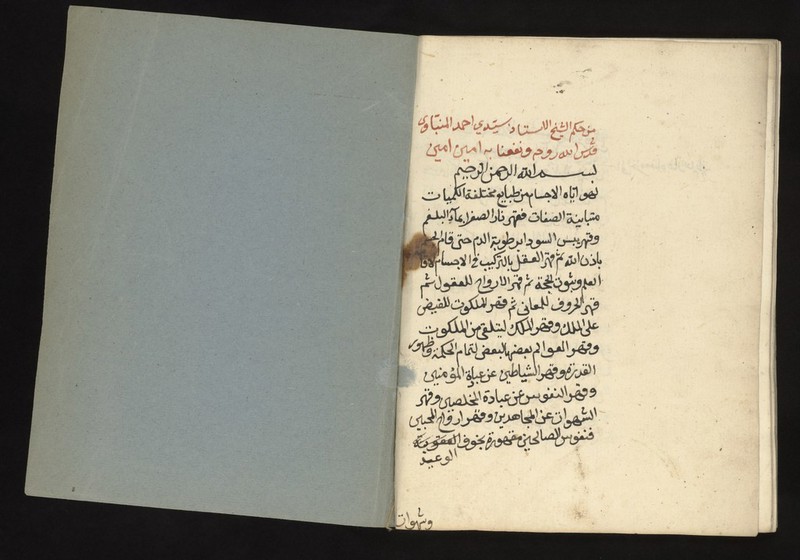 من حكم الشيخ الاستاذ سيدي احمد
قدس الله روحه ونفعنا به امين امين
بسم الله الرحمن الرحيم
الاجسام من طبايع مختلفة الكميات
متباينة الصفات فقهر نار الصفرا بماء البلغم
وقهر يبس السودا برطوبة الدم حتى قام
باذن الله ثم قهر العقل بالتركيب في الاجسام
العلم وثبوت الحجة ثم قهر الارواح للعقول ثم
قهر الحروف للمعاني ثم قهر الملكوت للفيض
على الملك وقهر الملك ليتلقى من الملكوت
وقهر العوالم بعضها لبعض لتمام الحكمة وظهور
القدرة وقهر الشياطين عن عباده المؤمنين
وقهر النفوس عن عبادة المخلصين وقهر
الشهوات عن المجاهدين وقهر ارواح المحبين
فنفوس الصالحين مقهورة بخوف العقوبة
الوعيد
وشهوات